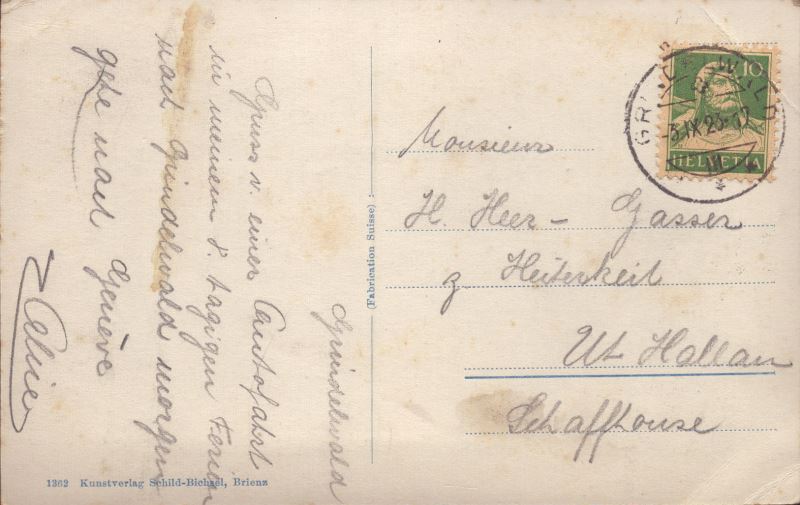 Grindelwald
Gruss v. einer Autofahrt
in meinem 8. tagigen Ferien
nach Grindelwald morgen
gehe nach Genève
Aline
Monsieur
H. Heer - Gasser
z. Heiterkeit
Ut. Hallau
Schaffhouse
(Fabrication Suisse)
1362 Kunstverlag Schild-Bichsel, Brienz
10
HELVETIA
GRINDELWALD
-3.IX.23.-12